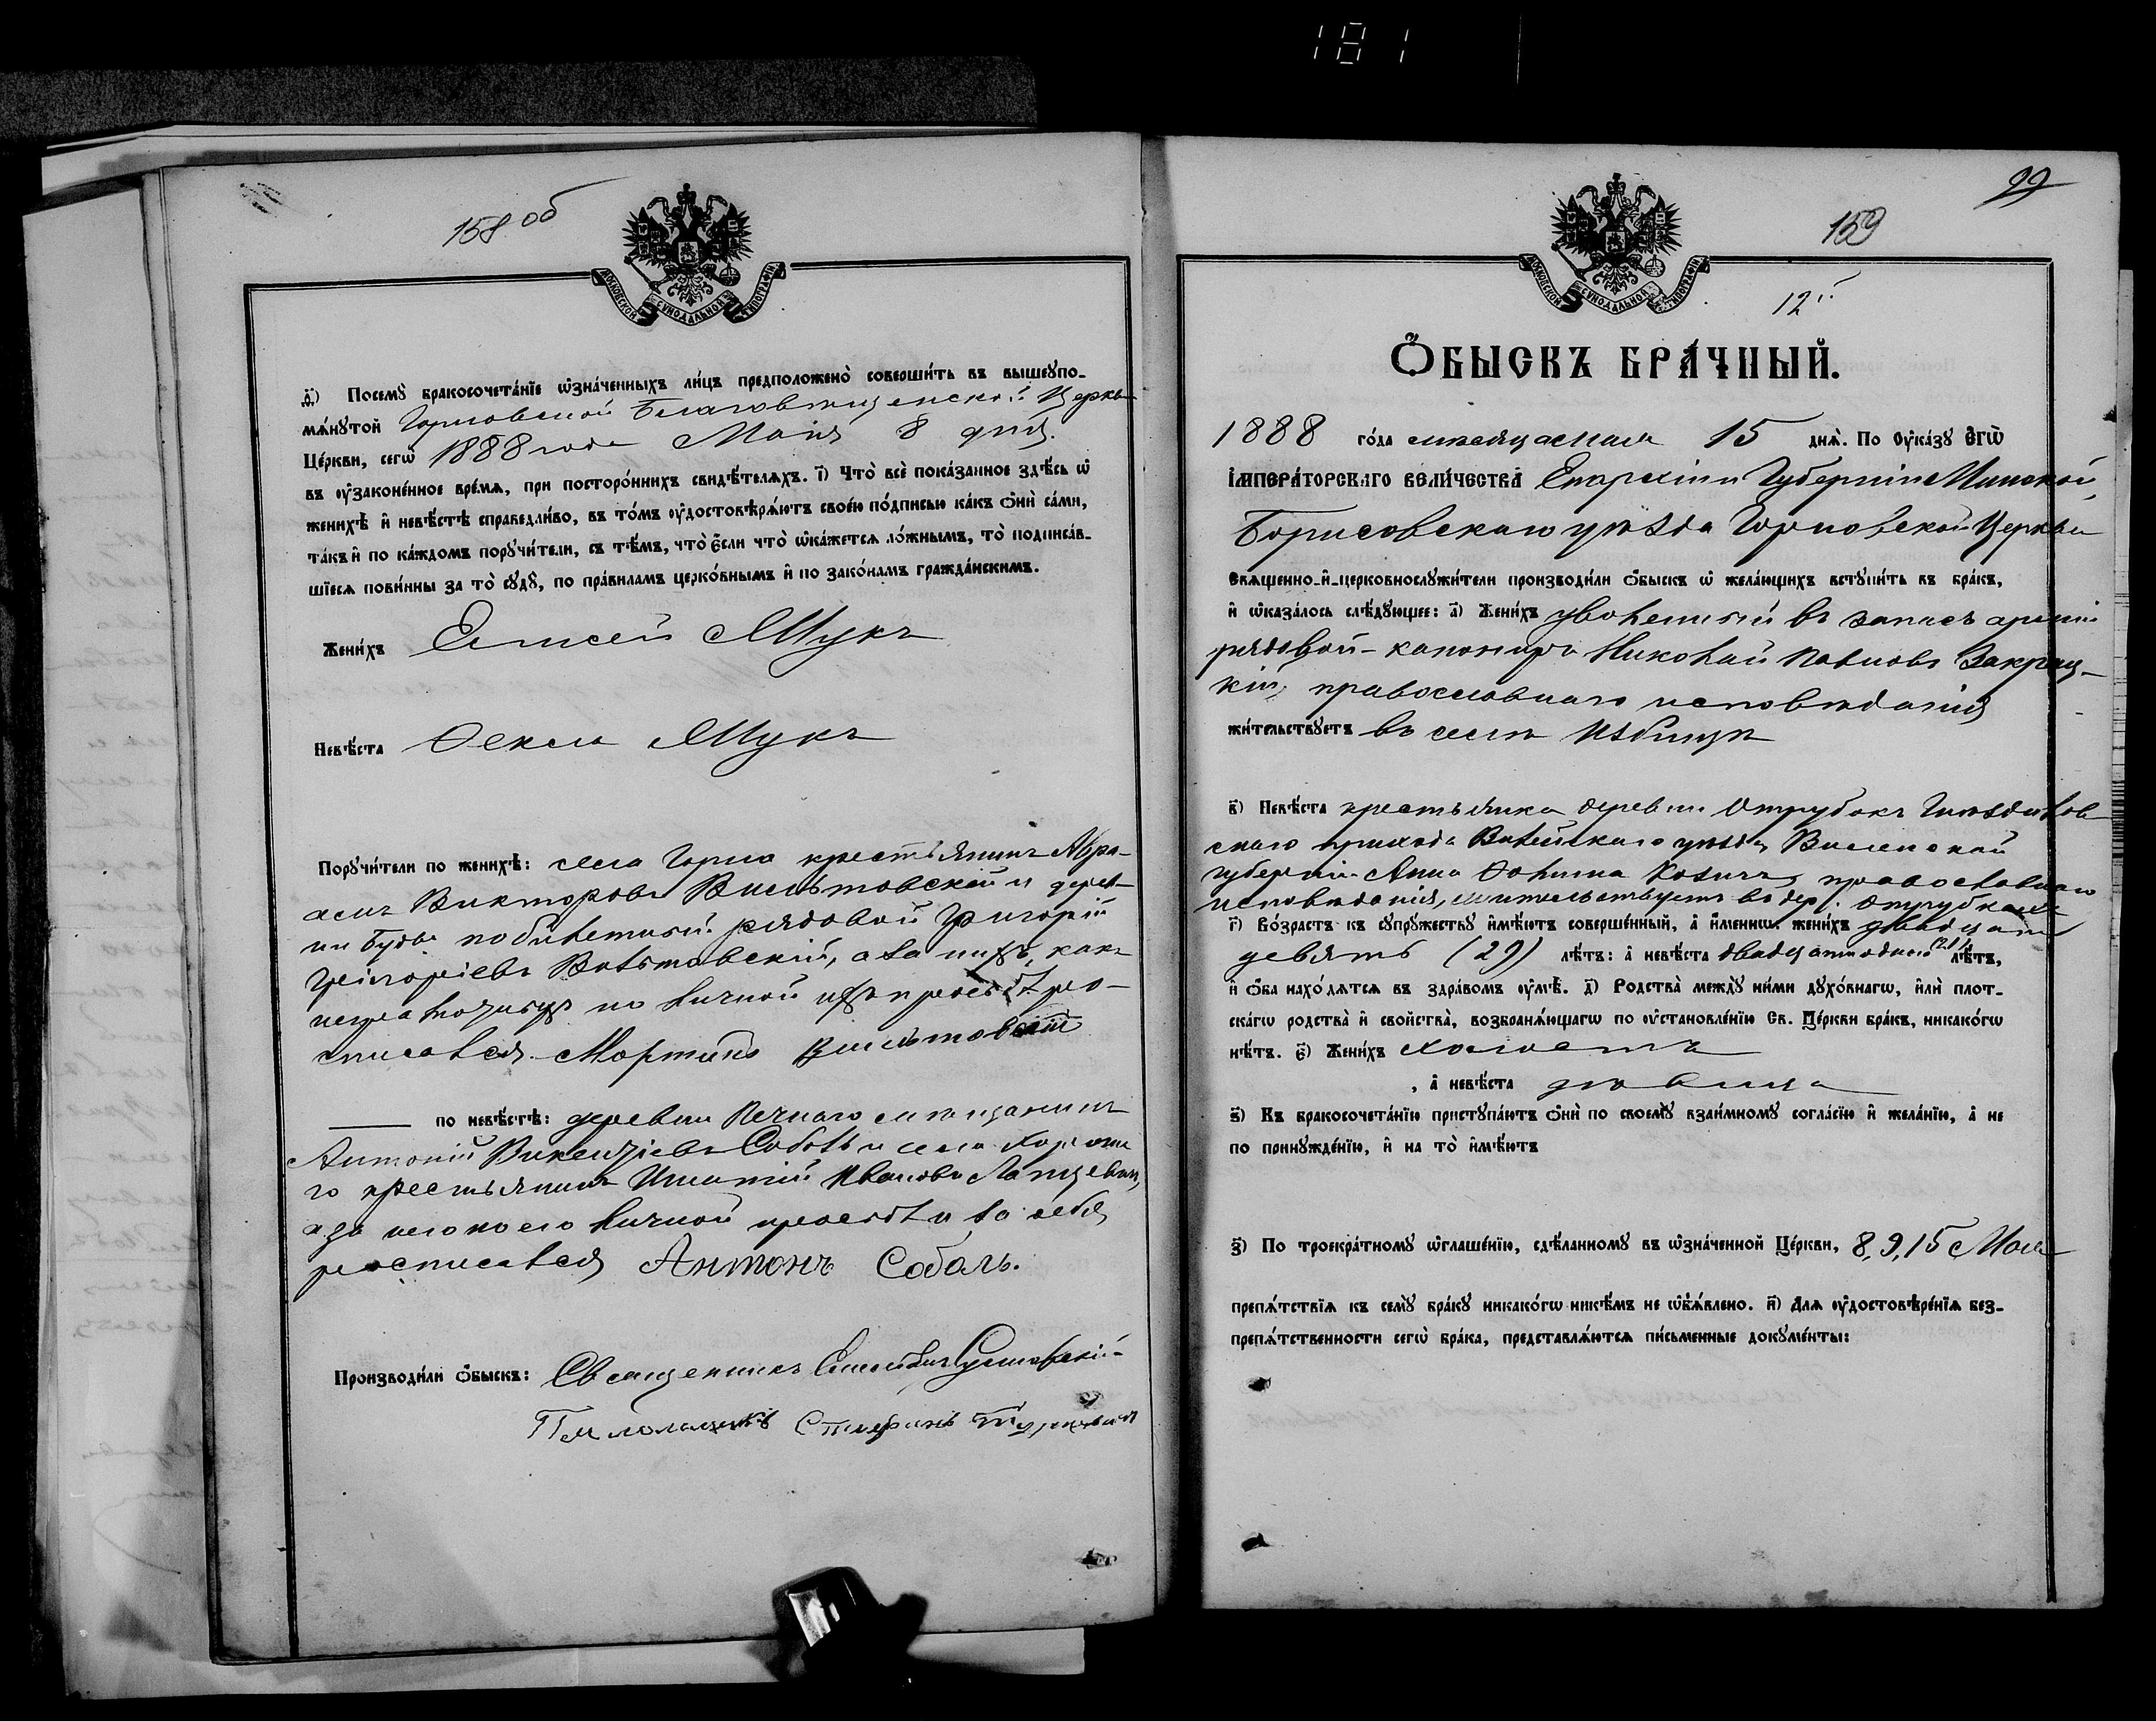 181
158 об
МОСКОВСКОЙ СѴНОДАЛЬНОЙ ТИПОГРАФІИ
д҃і) Посемꙋ̀ бракосочета́нїе ѡ҆зна́ченныхъ ли́цъ предположено̀ соверши́ть въ вышеꙋпо-
мѧ́нꙋтой Горновской Благовѣщенской Церкви
Це́ркви, сегѡ̀ 1888 года Маія 8 дня.
въ ᲂу҆зако́нeнное вре́мѧ, при посторо́ннихъ свидѣ́телѧхъ. і҃) Что̀ всѐ пока́занное здѣ́сь ѡ҆
женихѣ̀ и҆ невѣ́стѣ справедли́во, въ то́мъ ᲂу҆достовѣрѧ́ютъ свое́ю по́дписью ка́къ ѻ҆нѝ са́ми,
та́къ и҆ по ка́ждомъ порꙋчи́тели, съ тѣ́мъ, что̀ є҆́сли что̀ ѡ҆ка́жетсѧ ло́жнымъ, то̀ подписа́в-
шїесѧ пови́нны за то̀ сꙋдꙋ̀, по пра́виламъ церко́внымъ и҆ по зако́намъ гражда́нскимъ.
Жени́хъ Елисей Мукъ
Невѣ́ста Ѳекла Мукъ
Порꙋчи́тели по женихѣ̀: села Горна крестьянинъ Абра-
амъ Викторовъ Вильтовскій и дерев-
ни Буды побилетный рядовой Григорій
Григоріевъ Вильтовскій, а за нихъ, какъ
неграмотныхъ по личной ихъ просьбѣ ро-
списался Мартинъ Вильтовскій
по невѣ́стѣ: деревни мѣщанинъ
Антоній Викентіевъ Соболь и села
го крестьянинъ Игнатій Ивановъ
а за него по его личной просьбѣ и за себя
росписался Антонъ Соболь.
Производи́ли ѻ҆́быскъ: Священникъ
Псаломщикъ Стефанъ
99
159
МОСКОВСКОЙ СѴНОДАЛЬНОЙ ТИПОГРАФІИ
12й
Ѻ҆́БЫСКЪ БРА́ЧНЫЙ.
1888 го́да мѣсяца Мая 15 днѧ̀. По Оу҆ка́зꙋ Є҆гѡ̀
І҆мпера́торскагѡ вели́чества Епархіи и Губерніи Минской,
Борисовскаго уѣзда Горновской Церкви
Свѧще́нно-и҆-церковнослꙋжи́тели производи́ли ѻ҆́быскъ ѡ҆ жела́ющихъ встꙋпи́ть въ бра́къ,
и҆ ѡ҆каза́лось слѣ́дꙋющее: а҃) Жени́хъ уволенный въ запасъ арміи
рядовой-канониръ Николай Павловъ Закрец-
кій, православнаго исповѣданія
жи́тельствꙋетъ въ селѣ Избищѣ
в҃) Невѣ́ста крестьянка деревни Отрубокъ Гнѣздилов-
скаго прихода Вилейскаго уѣзда Виленской
губерніи Анна Ѳомина Козичъ, православнаго
исповѣданія, жительствуетъ въ дер. Отрубкахъ
г҃) Во́зрастъ къ сꙋпрꙋ́жествꙋ и҆мѣ́ютъ соверше́нный, а҆ и҆́менно. жени́хъ двадцати
девять (29) лѣ́тъ: а҆ невѣ́ста двадцати одного (21) лѣ́тъ,
и҆ ѻ҆́ба нахо́дѧтсѧ въ здра́вомъ ᲂу҆мѣ̀. д҃) Родства̀ междꙋ̀ ни́ми дꙋхо́внагѡ, и҆лѝ плот-
ска́гѡ родства̀ и҆ сво́йства, возбранѧ́ющагѡ по ᲂу҆становле́нїю Св. Це́ркви бра́къ, никако́гѡ
нѣ́тъ. є҃) Жени́хъ холостъ
, а҆ невѣ́ста дѣвица
ѕ҃) Къ бракосочета́нїю пристꙋпа́ютъ ѻ҆нѝ по своемꙋ̀ взаи́мномꙋ согла́сїю и҆ жела́нїю, а҆ не
по принꙋжде́нїю, и҆ на то̀ и҆мѣ́ютъ
з҃) По троекра́тномꙋ ѡ҆глаше́нїю, сдѣ́ланномꙋ въ ѡ҆зна́ченной Це́ркви, 8, 9, 15 Мая
препѧ́тствїѧ къ семꙋ̀ бра́кꙋ никако́гѡ никѣ́мъ не ѡ҆б̾ѧ́влено. и҃) Для ᲂу҆достовѣре́нїѧ без-
препѧ́тственности сегѡ̀ бра́ка, представлѧ́ютсѧ пи́сьменные докꙋме́нты: